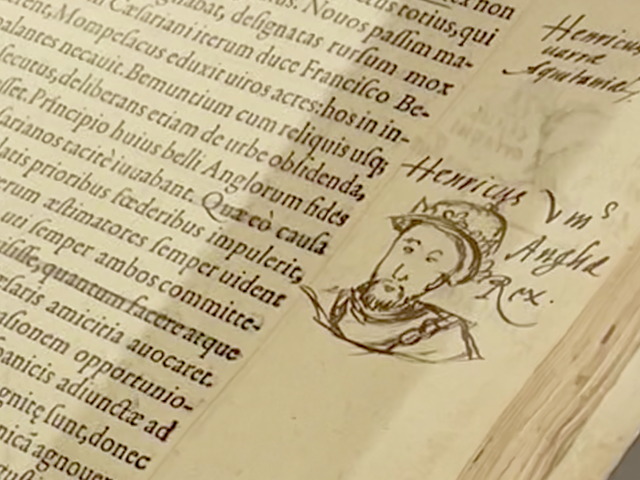 ex non
ctus torius, qui
gnabat, designatas rursum mox
s. Nouos passim ma-
m Cæsariani iterum duce Francisco Be-
rent, Mompesacus eduxit uiros acres: hos in in-
palantes necauit. Bemuntium cum reliquis usq;
secutus, deliberans etiam de urbe obsidenda,
sset. Principio huius belli Anglorum fides
sarianos tacitè iuuabant. Quæ eò causa
latis prioribus fœderibus impulerit,
erum æstimatores semper uident
uti semper ambos committe-
uisse, quantum facere atque
esaris amicitia auocaret.
asionem opportunio-
panicis adiunctæ ad
gnitę sunt, donec
nicā agnouer
Henricus
Aquitaniæ
Henricus Vm s
Angliæ
Rex.